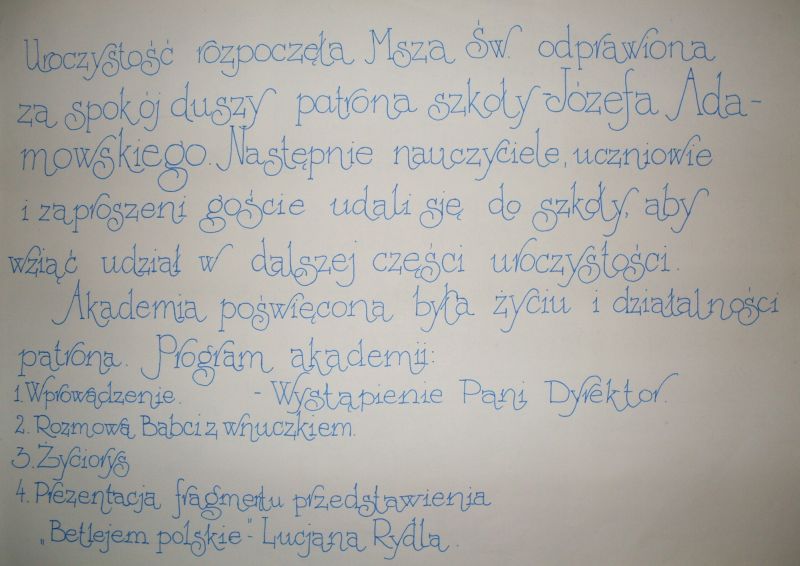 Uroczystość rozpoczęła Msza Św. odprawiona
za spokój duszy patrona szkoły - Józefa Ada-
mowskiego. Następnie nauczyciele, uczniowie
i zaproszeni goście udali się do szkoły, aby
wziąć udział w dalszej części uroczystości.
Akademia poświęcona była życiu i działalności
patrona. Program akademii:
1. Wprowadzenie. - Wystąpienie Pani Dyrektor.
2. Rozmowa Babci z wnuczkiem.
3. Życiorys
4. Prezentacja fragmentu przedstawienia
„Betlejem polskie" - Lucjana Rydla.